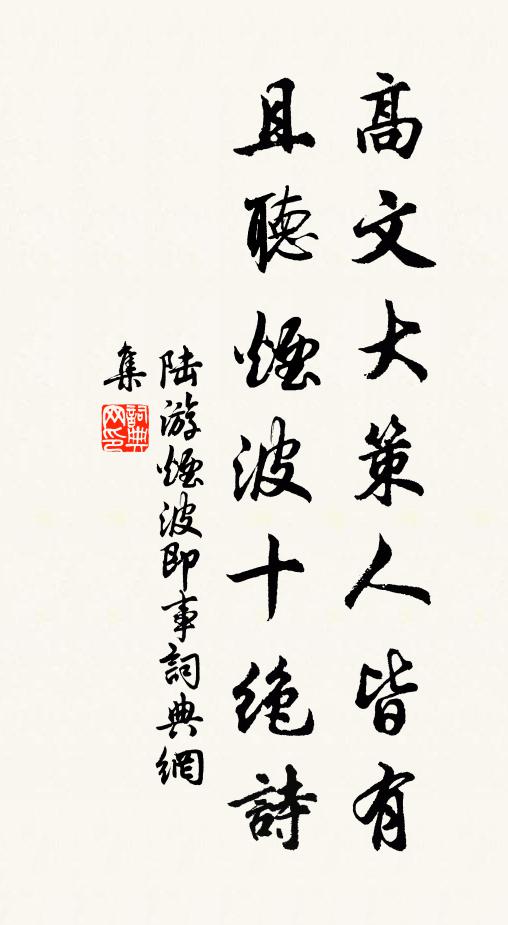 高文大策人皆有
且聽煙波十絕詩
陸游煙波即事詞典網
集
詞典网印